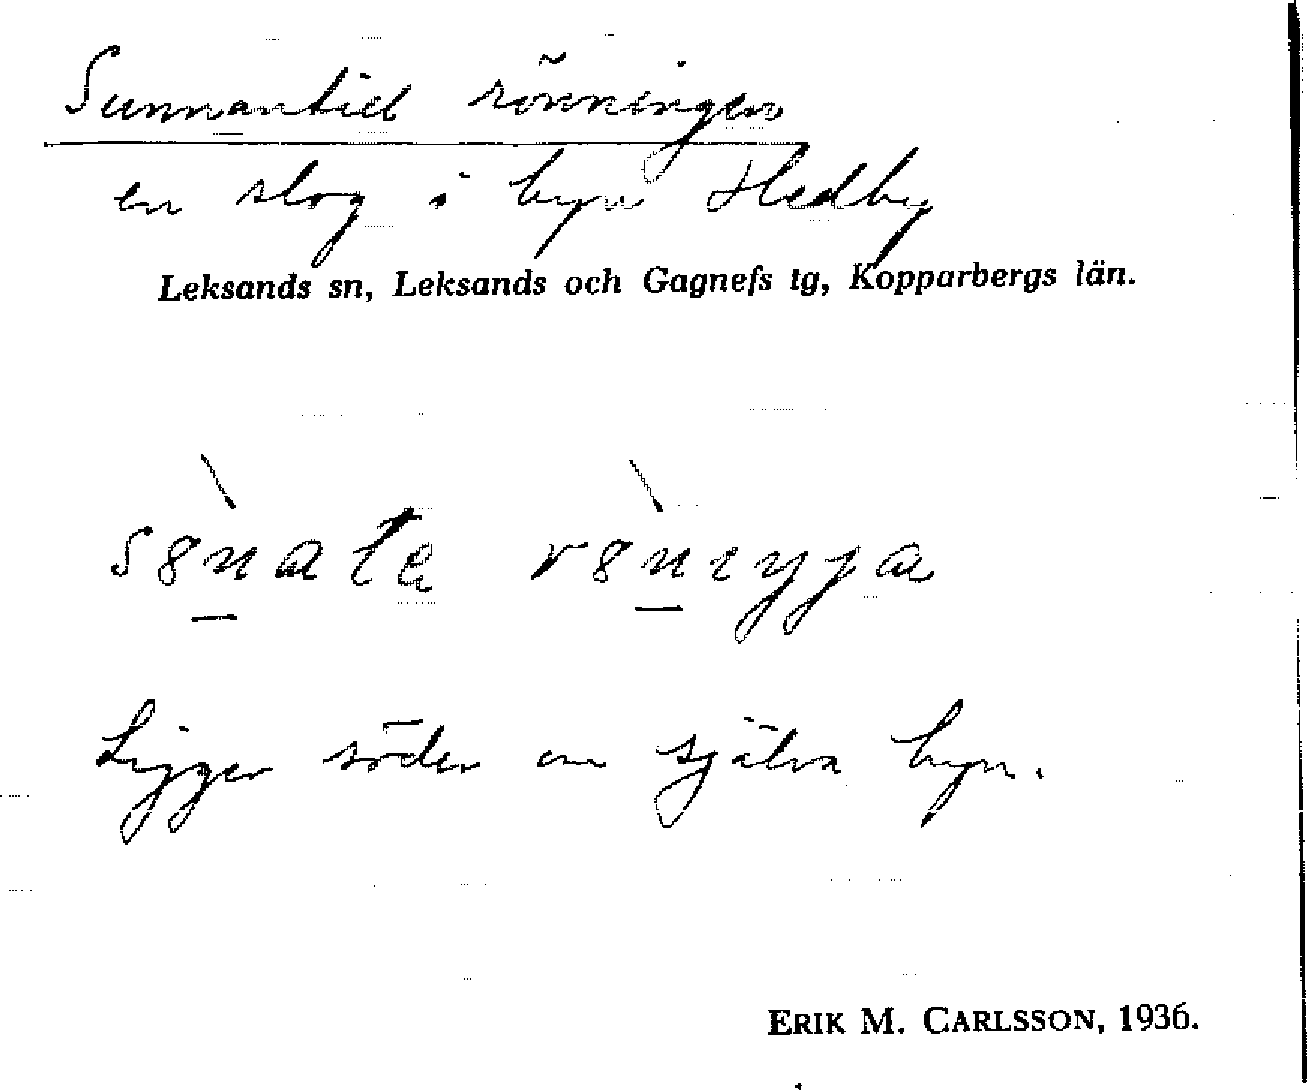 Sunnantill rönningen
en slog i byn Hedby
Leksands sn, Leksands och Gagnefs tg, Kopparbergs län.
Ligger söder om själva byn.
ERIK M. CARLSSON, 1936.